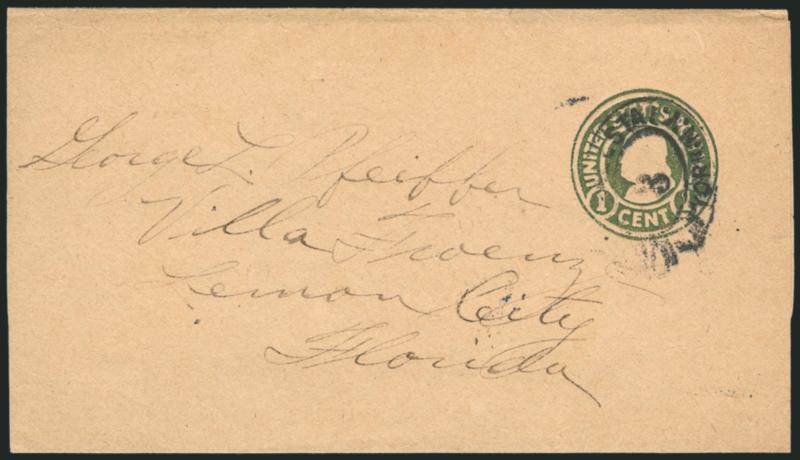 George L. Pfeiffer
Villa Froenz
Lemon City
Florida
UNITED STATES
1 CENT 1